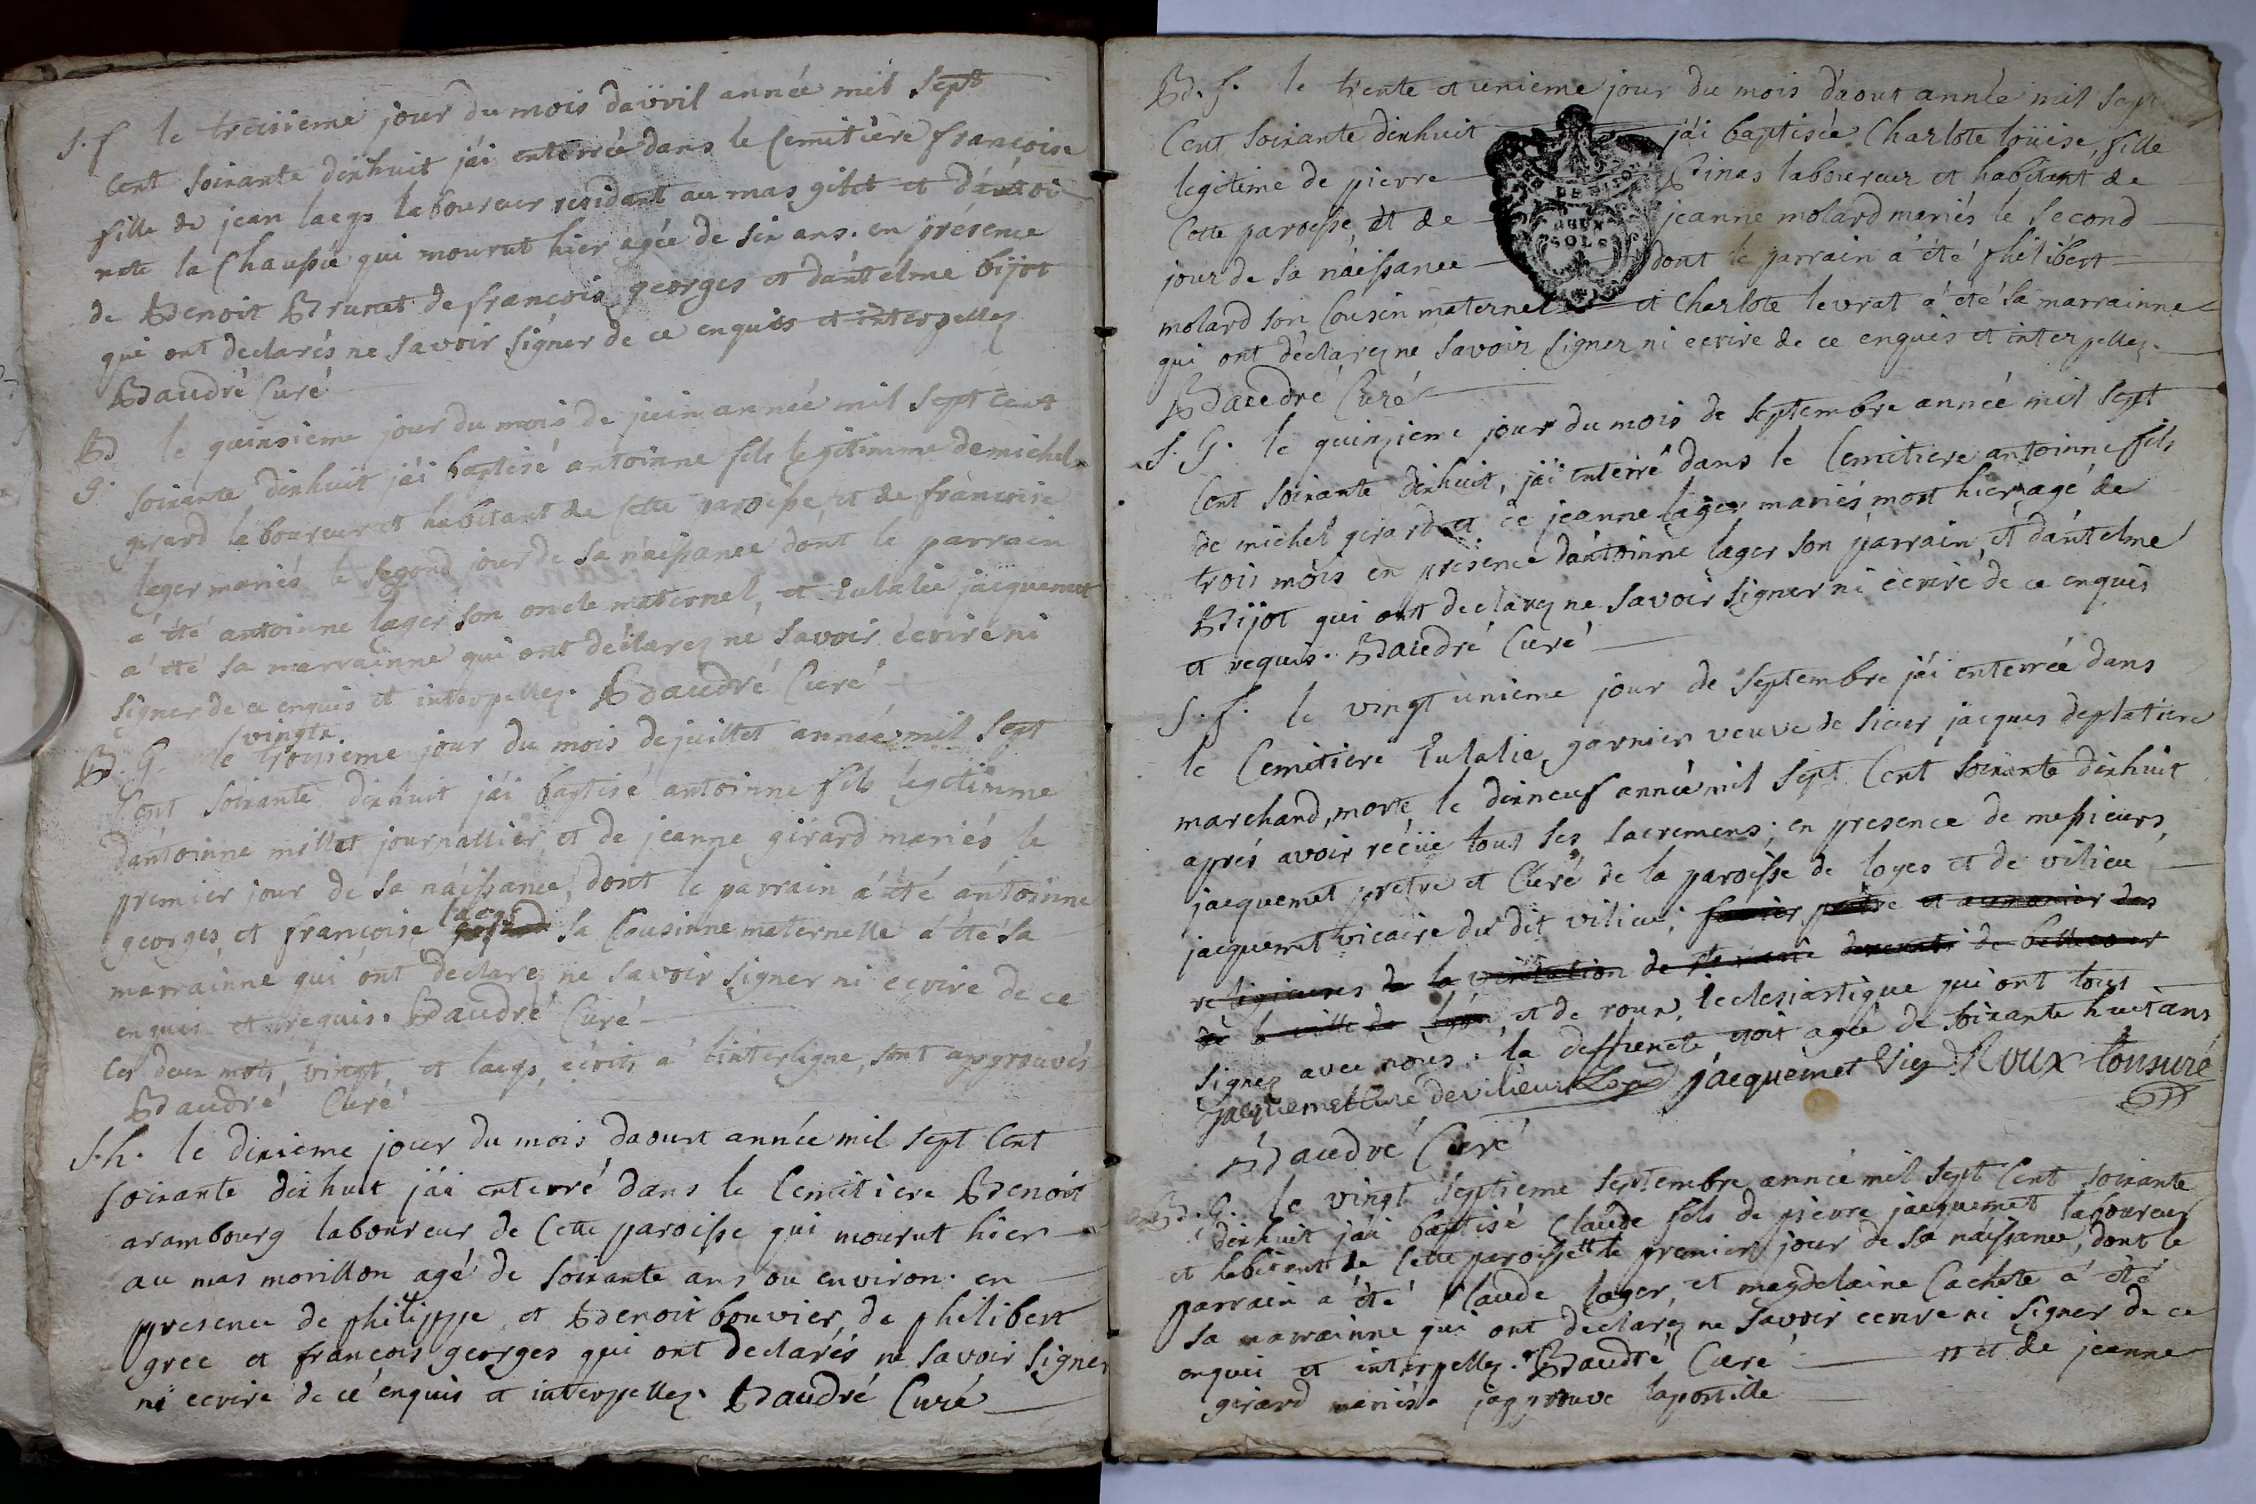 S. f le treisieme jour du mois davvil année mil sept
Cent soixante dixhuit jái enterrée dans le Cemitière françoise
fille de jean lacys laboureur residant au mas gibet et dántoi
nete la Chaussée qui mourut hier agée de six ans. en présence
de Benoit Brunet de françois georges et dántelme bijot
qui ont declarés ne savoir signer de ce enquis et interpellez
Baudré Curé
B le quinsieme jour du mois de juin année mil sept cent
g. soixante dixhuit jái baptisé antoinne fils legitimme de michel
girard laboureur et habitant de cette paroisse, et de françoise
lager mariés le segond jour de sa náissance dont le parrain
a été antoinne lager son oncle maternel, et Eulalie jacquemet
a été sa marrainne qui ont déclarez ne savoir écrire ni
signer de ce enquis et interpellez. Baudré Curé
vingt
B. G. le troisieme jour du mois de juillet année mil sept
Cent soixante dixhuit jái baptisé antoinne fils legitimme
dántoinne millet journallier et de jeanne girard mariés le
premier jour de sa náissance, dont le parrain a été antoinne
lacgs
georges, et françoise sa Cousinne maternelle a été sa
marrainne qui ont declarez ne savoir signer ni ecrire de ce
enquis et requis. Baudré Curé
Ces deux mots, vingt, et lacgs, écrits a l'interligne, sont approuvés
Baudré Curé
S. h. le dixieme jour du mois daoust année mil sept cent
soixante dixhuit jái enterré dans le Cemitiere Benoit
arambourg laboureur de Cette paroisse qui mourut hier
au mas morillon agé de soixante ans ou environ. en
presence de philippe, et Benoit bouvier, de philibert
gree et françois georges qui ont declarés ne savoir signer
ni ecrire de ce enquis et interpellez. Baudré Curé
B. f. le trente et unieme jour du mois daout année mil sept
Cent soixante dixhuit jái baptisée Charlote loüise, fille
legitime de pierre Pinas laboureur et habitant de
Cette paroisse, et de jeanne molard mariés le second
jour de sa náissance dont le parrain a été philibert
molard son Cousin maternel et Charlote levrat a été sa marrainne
qui ont déclarez ne savoir signer ni ecrire de ce enquis et interpellez.
Baudré Curé
S. G. le quinzieme jour du mois de septembre année mil sept
Cent soixante dixhuit, jái enterré dans le Cemitiere antoinne fils
de michel girard et de jeanne lager mariés, mort hier, agé de
trois mois en presence dántoinne lager son parrain, et dántelme
Bijot qui ont declarez ne savoir signer ni écrire de ce enquis
et requis. Baudré Curé
S. f. le vingt unieme jour de septembre jái enterrée dans
le Cemitiere Eulalie garnier veuve de sieur jacques deplatiere
marchand, morte le dixneuf année mil sept Cent soixante dixhuit
aprés avoir recüe tous ses sacremens; en presence de messieurs,
jacquemet prétre et Curé de la paroisse de loyes et de vilieu
jacquemet vicaire du dit vilieu; prétre et aumonier des
religieuses de la visitation de de bellecour
de la ville de lyon, et de roux, Ecclesiastique qui ont tous
signez avec nous. la deffuncte étoit agée de soixante huit ans
jacquemet Curé de vilieu jacquemet Vic Roux tonsuré
Baudré Curé
B. G. le vingt septieme septembre année mil sept Cent soixante
dixhuit jái baptisé Claude fils de pierre jacquemet laboureur
et habitant de Cette paroisse # le premier jour de sa náissance, dont le
parrain a été Claude lager, et magdelaine Cachete a été
sa marrainne qui ont déclarez ne savoir ecrire ni signer de ce
enquis et interpellez. Baudré Curé # et de jeanne
girard mariés. japprouve lapostille